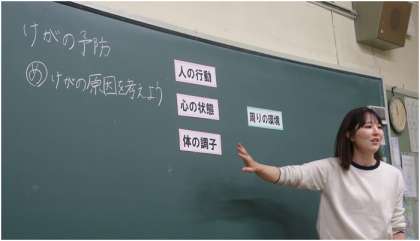 けがの予防
め けがの原因を考えよう
人の行動
心の状態
体の調子
周りの環境